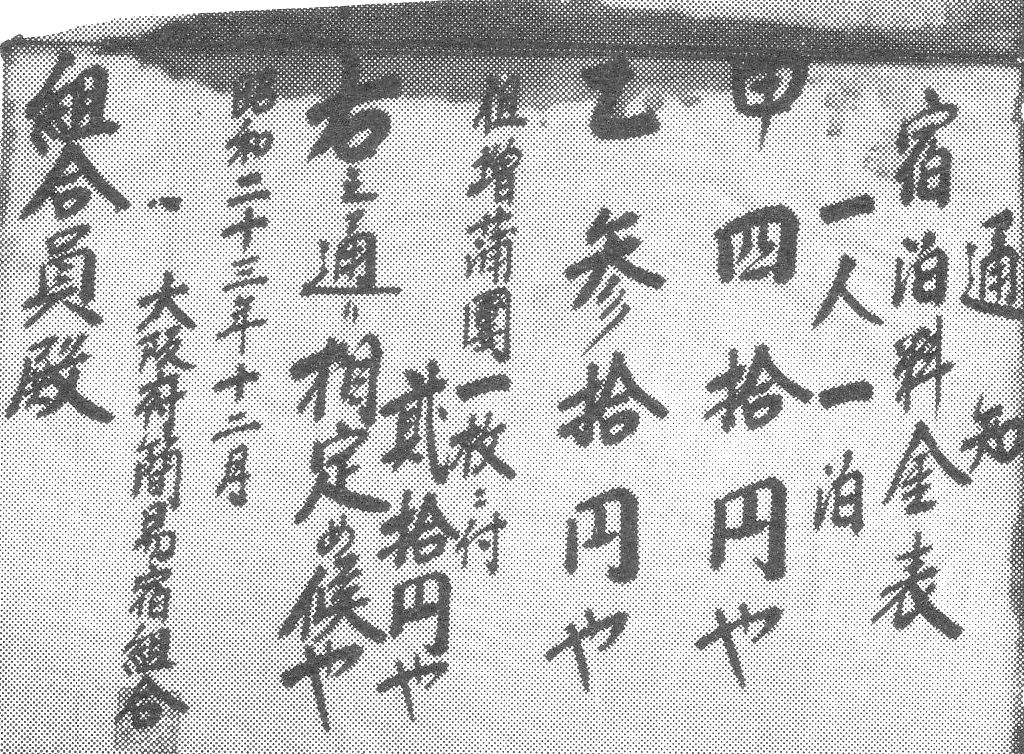 通知
宿泊料金表
一人一泊
甲 四拾円や
乙 参拾円や
但増蒲團一枚ニ付
貳拾円や
右之通り相定め候や
昭和二十三年十二月
大阪府簡易宿組合
組合員殿